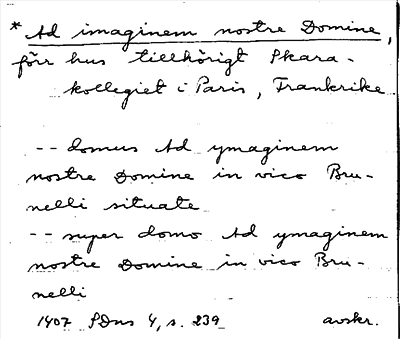 * Ad imaginem nostre Domine,
förr hus tillhörigt Skara-
kollegiet i Paris, Frankrike.
-- domus Ad ymaginem
nostre Domine in vico Bru-
nelli situate
-- super domo Ad ymaginem
nostre Domine in vico Bru-
nelli
1407 SDns 4, s. 239 avskr.